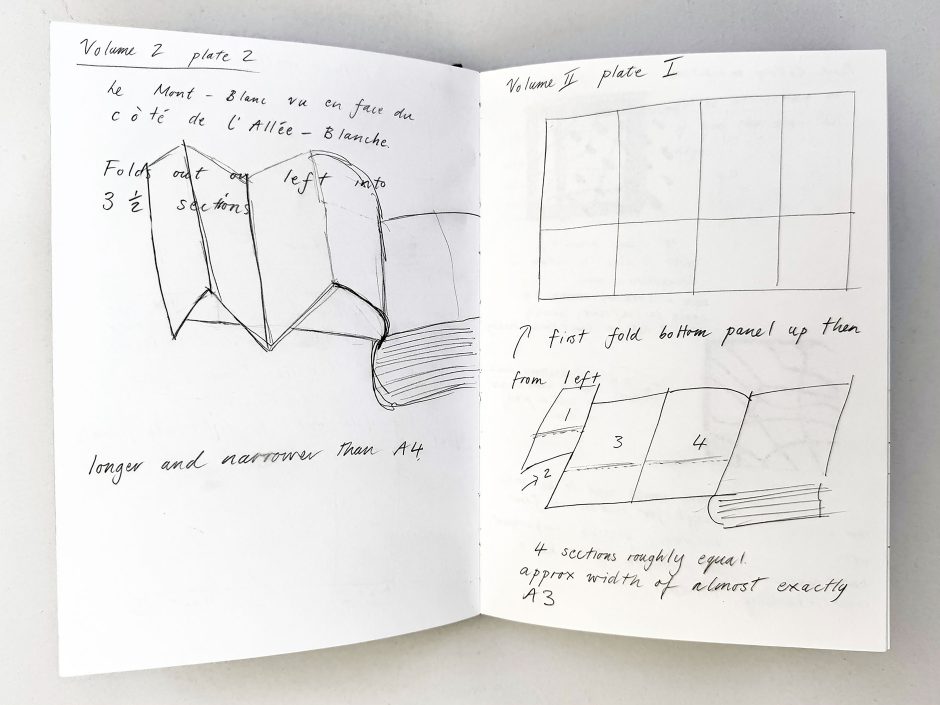 Volume 2 plate 2
Le Mont-Blanc vu en face du
côté de l'Allée-Blanche.
Folds out on left into
3 ½ sections
longer and narrower than A4.
Volume II plate I
↗ first fold bottom panel up then
from left
1
2
3
4
4 sections roughly equal.
approx width of almost exactly
A3